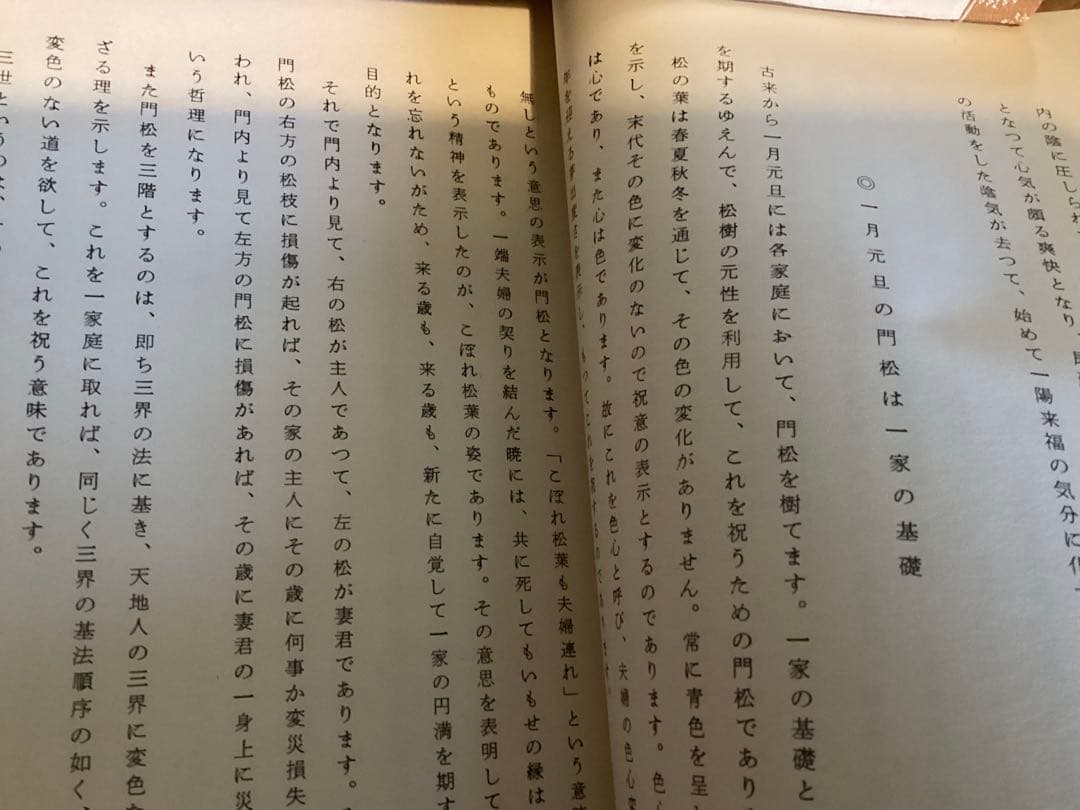 内の陰に圧しられ
となつて心気が頗る爽快となり、
の活動をした陰気が去つて、始めて一陽来福の気分に
◎一月元旦の門松は一家の基礎
古来から一月元旦には各家庭において、門松を樹てます。一家の基礎と
を期するゆえんで、松樹の元性を利用して、これを祝うための門松であり
松の葉は春夏秋冬を通じて、その色の変化がありません。常に青色を呈
を示し、末代その色に変化のないので祝意の表示とするのであります。色
は心であり、また心は色であります。故にこれを色心と呼び、夫婦の色心変
無しという意思の表示が門松となります。「こぼれ松葉も夫婦連れ」という意
ものであります。一端夫婦の契りを結んだ暁には、共に死してもいもせの縁は
という精神を表示したのが、こぼれ松葉の姿であります。その意思を表明して
れを忘れないがため、来る歳も、来る歳も、新たに自覚して一家の円満を期す
目的となります。
それで門内より見て、右の松が主人であつて、左の松が妻君であります。
門松の右方の松枝に損傷が起れば、その家の主人にその歳に何事か変災損失
われ、門内より見て左方の門松に損傷があれば、その歳に妻君の一身上に災
いう哲理になります。
また門松を三階とするのは、即ち三界の法に基き、天地人の三界に変色
ざる理を示します。これを一家庭に取れば、同じく三界の基法順序の如く、
変色のない道を欲して、これを祝う意味であります。
三世というのは、